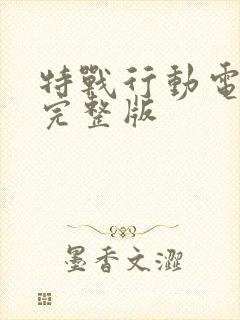 特戰行動電
完整版
墨香文澀